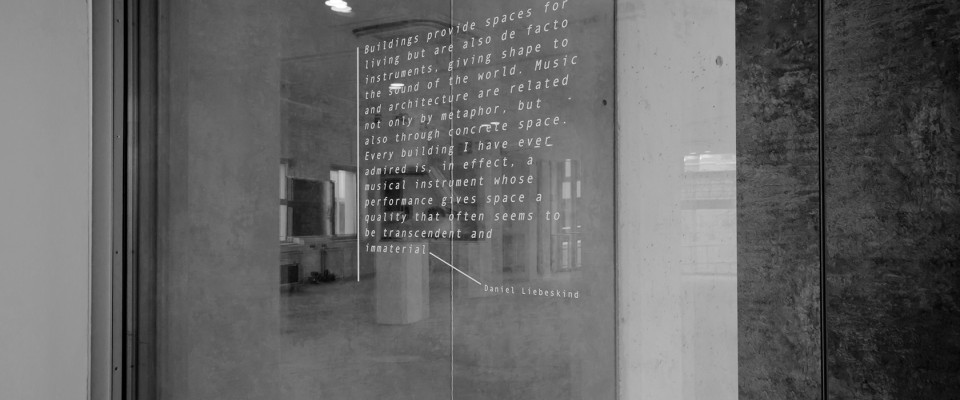 Buildings provide spaces for
living but are also de facto
instruments, giving shape to
the sound of the world. Music
and architecture are related
not only by metaphor, but
also through concrete space.
Every building I have ever
admired is, in effect, a
musical instrument whose
performance gives space a
quality that often seems to
be transcendent and
immaterial
Daniel Liebeskind